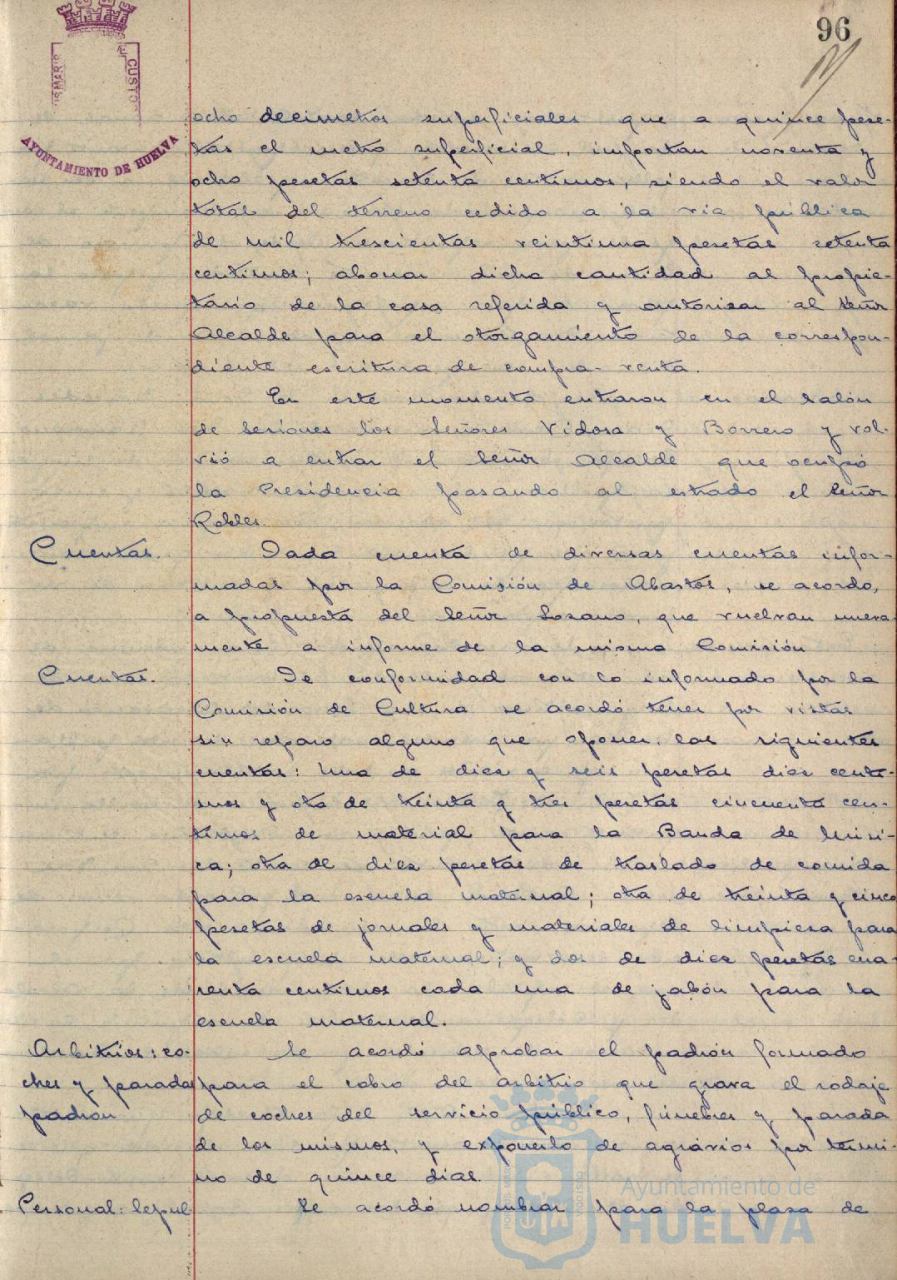 96
AYUNTAMIENTO DE HUELVA
CUSTO
ocho decimetros superficiales que a quince pese-
tas el metro superficial, importan noventa y
ocho pesetas setenta centimos, siendo el valor
total del terreno cedido a la via pública
de mil trescientas veintiuna pesetas setenta
centimos; abonar dicha cantidad al propie-
tario de la casa referida y autorizar al Señor
Alcalde para el otorgamiento de la correspon-
diente escritura de compra-venta.
En este momento entraron en el salón
de sesiones los Señores Vidosa y Borrero y vol-
vió a entrar el Señor Alcalde que ocupó
la Presidencia pasando al estrado el Señor
Robles.
Cuentas. Dada cuenta de diversas cuentas infor-
madas por la Comisión de Abastos, se acordo,
a propuesta del Señor Lozano, que vuelvan nueva
mente a informe de la misma Comisión
Cuentas. De conformidad con lo informado por la
Comisión de Cultura se acordó tener por vistas
sin reparo alguno que oponer, las siguientes
cuentas: Una de diez y seis pesetas diez centi-
mos y otra de treinta y tres pesetas cincuenta cen-
timos de material para la Banda de Músi-
ca; otra de diez pesetas de traslado de comida
para la escuela maternal; otra de treinta y cinco
pesetas de jornales y materiales de limpieza para
la escuela maternal; y dos de diez pesetas cua-
renta centimos cada una de jabón para la
escuela maternal.
Arbitrios: co- Se acordó aprobar el padrón formado
ches y paradas para el cobro del arbitrio que grava el rodaje
padron de coches del servicio público, fúnebres y parada
de los mismos, y exponerlo de agravios por termi-
no de quince dias.
Personal: Sepul Se acordó nombrar para la plaza de
Ayuntamiento de
HUELVA